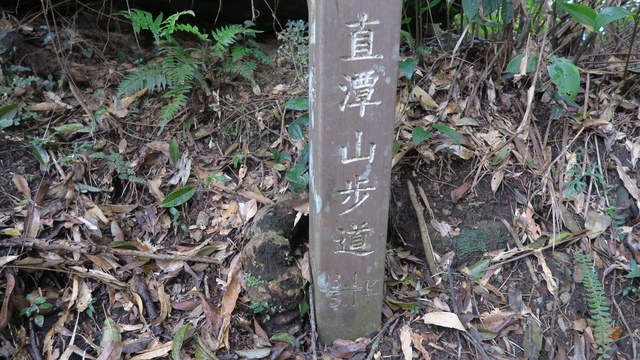 直潭山步道